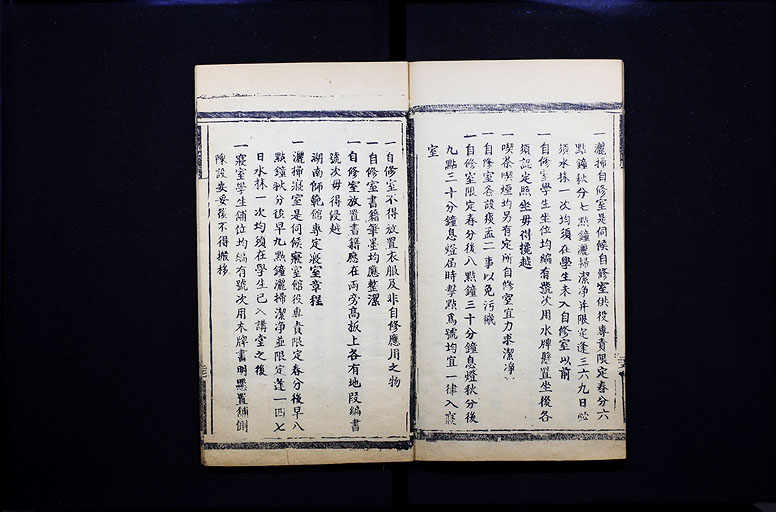 一灑掃自修室是伺候自修室供役專責限定春分六
點鐘秋分七點鐘灑掃潔净并限定逢三六九日必
須水抹一次均須在學生未入自修室以前
一自修室學生坐位均編有號次用水牌懸置坐後各
須認定照坐毋得攙越
一喫茶喫煙均另有定所自修室宜力求潔净
一自修室各設痰盂二事以免污穢
一自修室限定春分後八點鐘三十分鐘息燈秋分後
九點三十分鐘息燈屆時擊點爲號均宜一律入寢
室
一自修室不得放置衣服及非自修應用之物
一自修室書籍筆墨均應整潔
一自修室放置書籍應在兩旁髙板上各有地段編書
號次毋得侵越
湖南師範館專定寢室章程
一灑掃寢室是伺候寢室館役專責限定春分後早八
點鐘秋分後早九點鐘灑掃潔净並限定逢一四七
日水抹一次均須在學生已入講室之後
一寢室學生鋪位均編有號次用木牌書明懸置鋪側
陳設妥妥後不得搬移